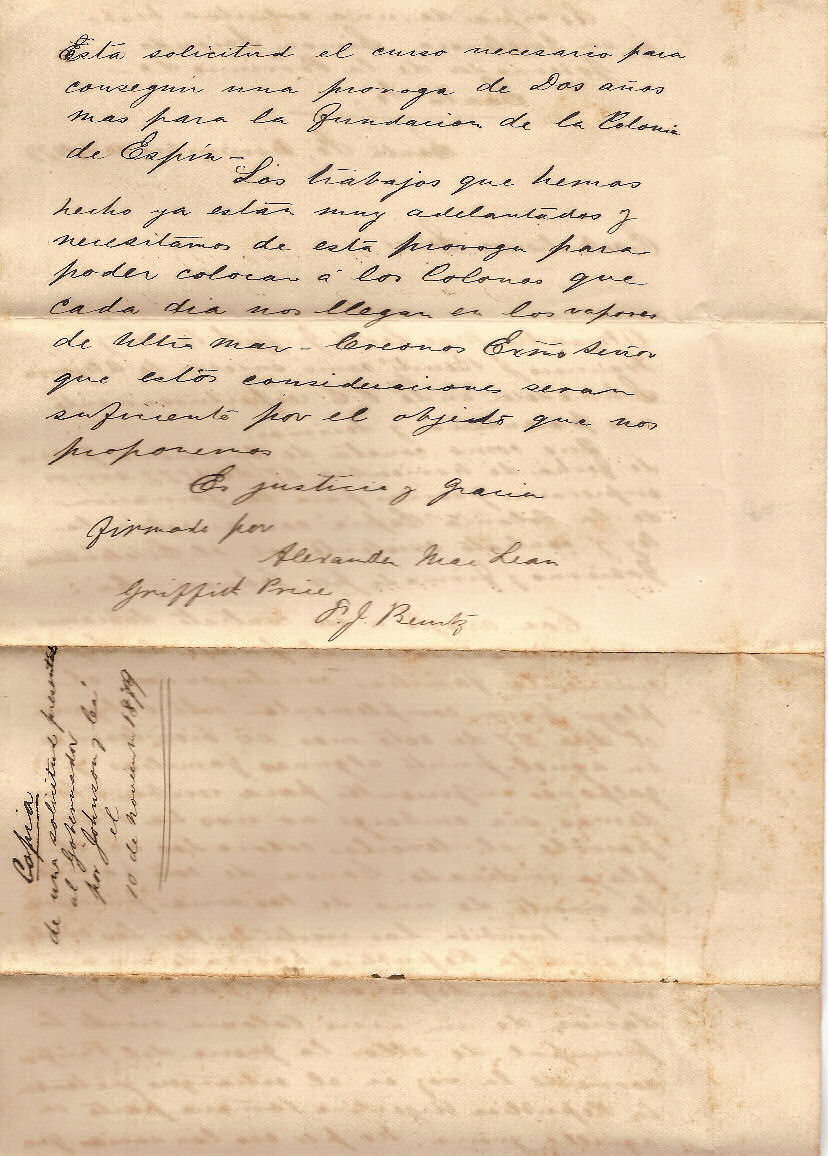 Esta solicitud el curso necesario para
conseguir una provoga de Dos años
mas para la Fundacion de la Colonia
de Espin-
Los trabajos que hemos
hecho ya están muy adelantados y
necesitamos de esta provoga para
poder colocar á los Colonos que
cada dia nos llegan en los vapores
de Ultra mar - Creonos Exmo Señor
que estos consideraciones seran
suficiente por el objeto que nos
proponemos
Es justicia y Gracia
firmado por
Alexander Mac Lean
Griffith Price
P. J. Benitz
Copia
de una solicitud presentada
al Gobernador
por Johnson y Cia
el
10 de noviembre 1889